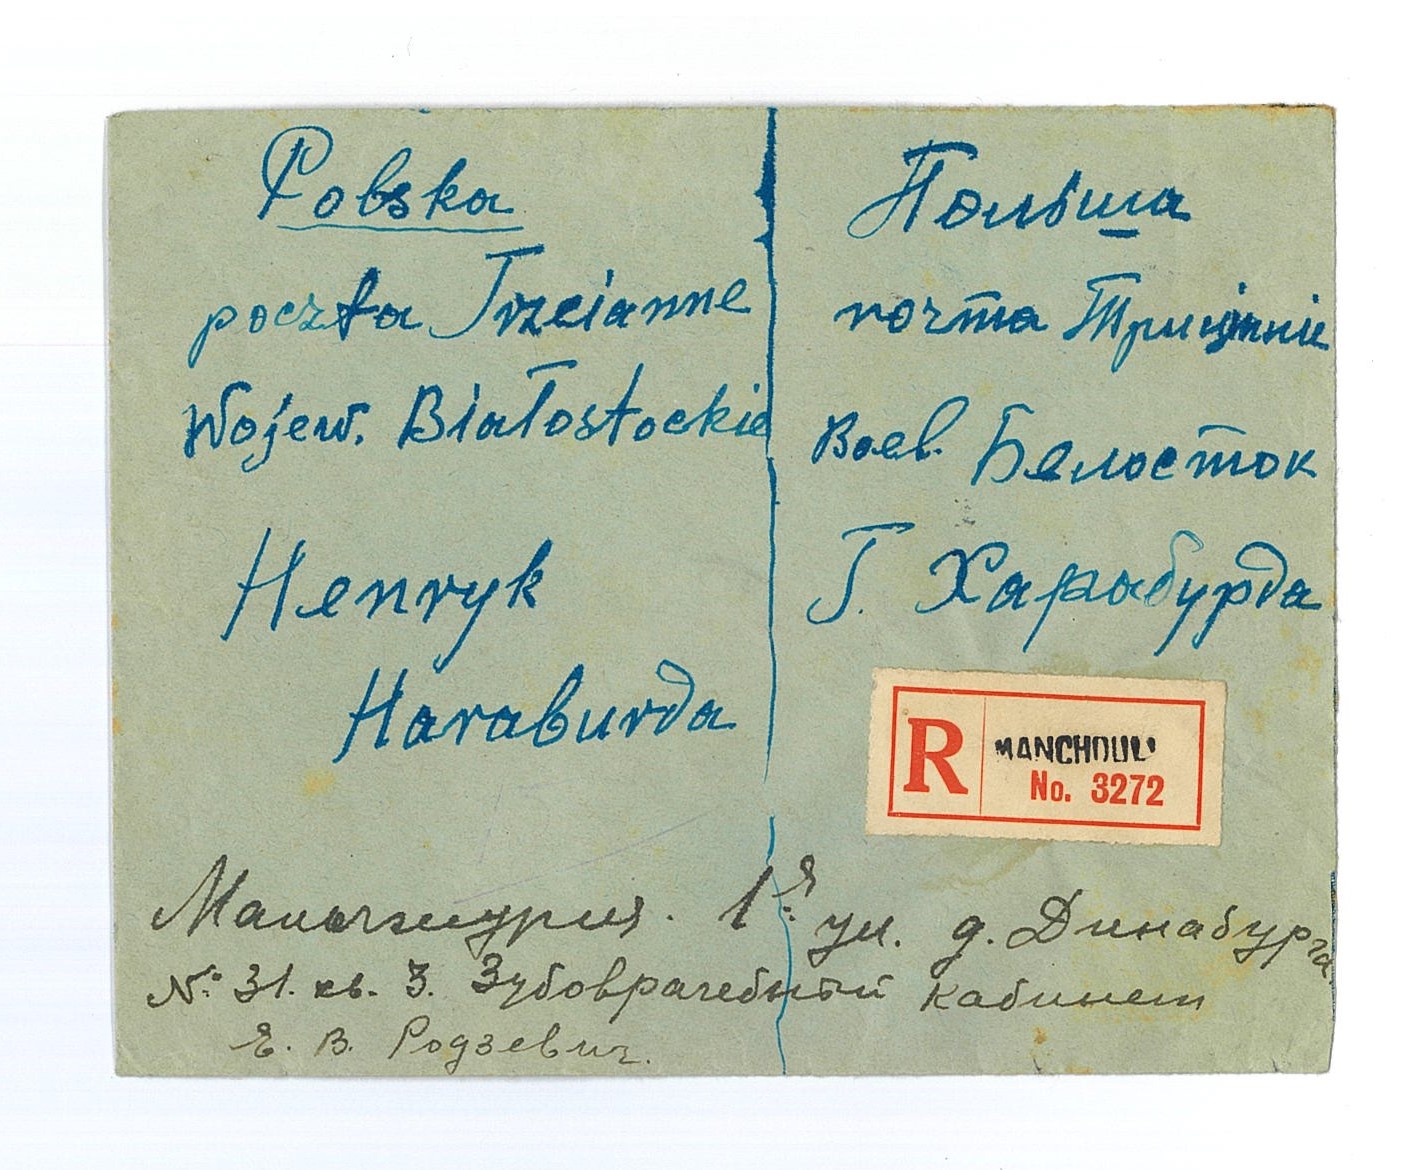 Polska
poczta Trzcianne
Wojew. Białostockie
Henryk
Haraburda
Польша
почта
Воев. Белосток
Г. Харабурда
R
MANCHOULI
No. 3272
Маньчжурия. 1я ул. д. Динабурга
№ 31. кв. 3. Зубоврачебный кабинет
Е. В. Родзевич.